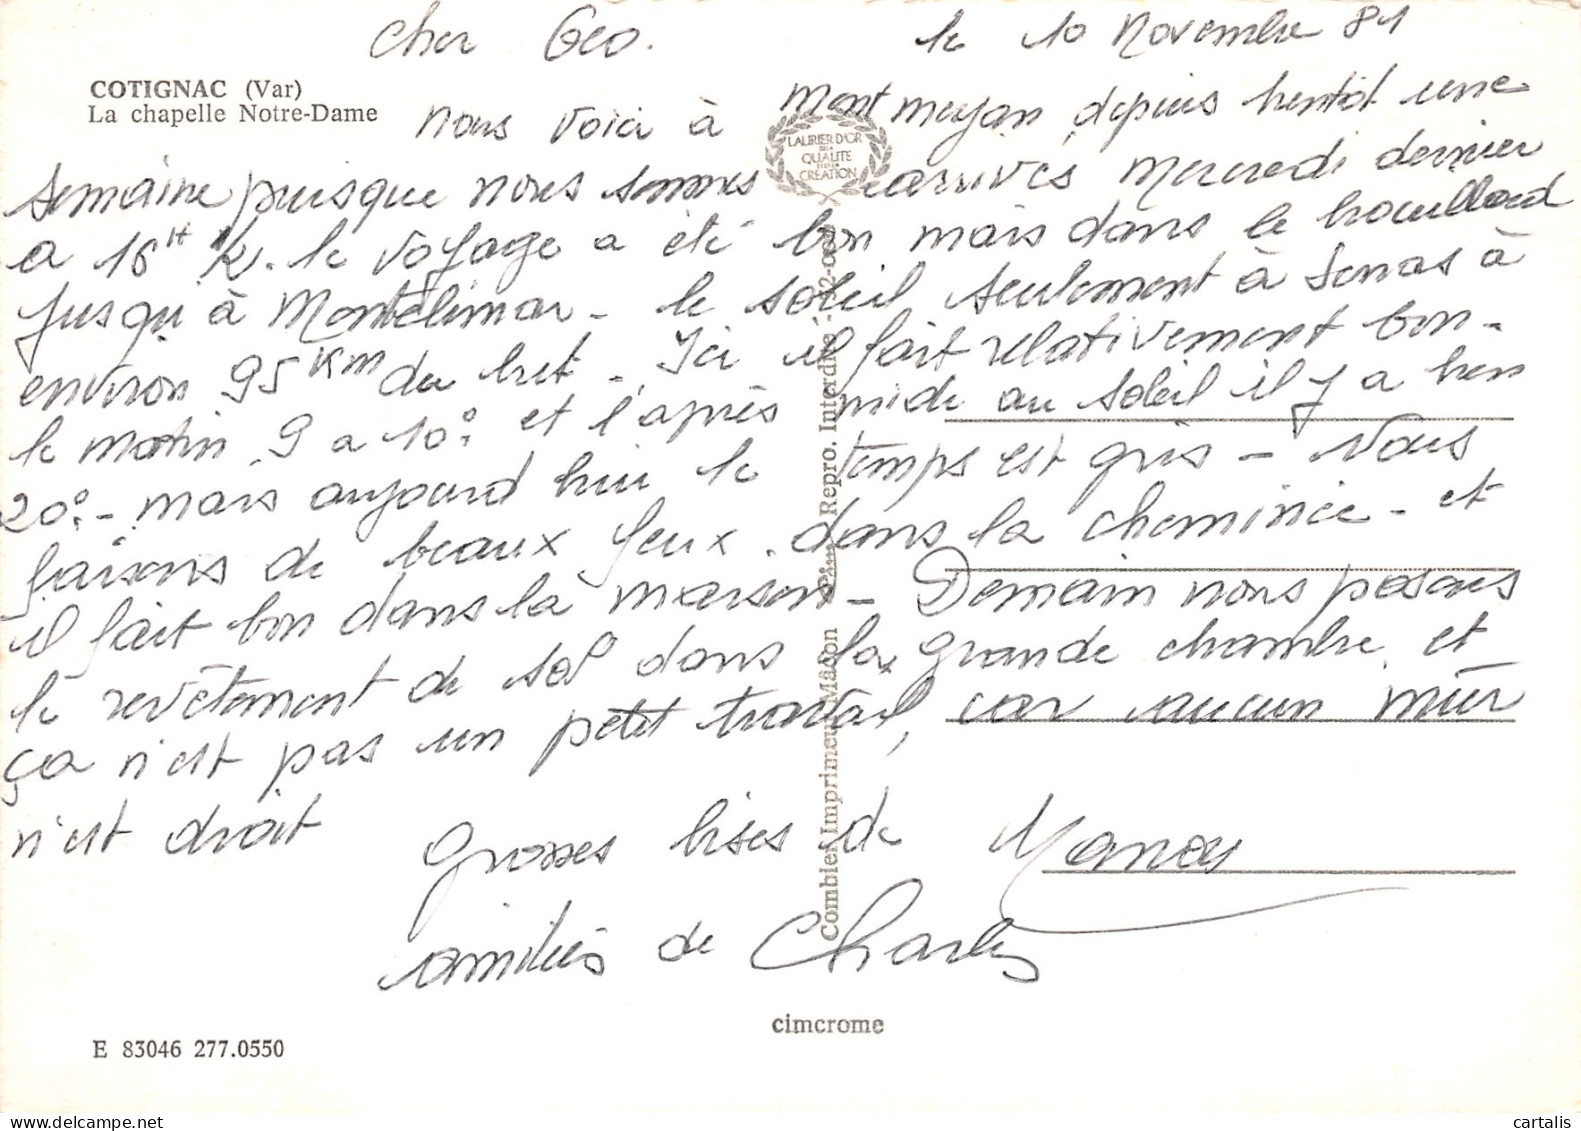 Cher Geo.
le 10 Novembre 81
COTIGNAC (Var)
La chapelle Notre-Dame
Nous voici à Montmeyan depuis bientôt une
semaine puisque nous sommes arrivés Mercredi dernier
a 16H ½. le voyage a été bon mais dans le brouillard
jusqu'à Montélimar - le soleil seulement à Senas à
environ 95 Km du but -. Ici il fait relativement bon -
le matin 9 a 10° et l'après midi au soleil il y a bien
20° - mais aujourd'hui le temps est gris - Nous
faisons de beaux feux dans la cheminée - et
il fait bon dans la maison - Demain nous posons
le revêtement de sol dans la grande chambre et
ça n'est pas un petit travail, car aucun mur
n'est droit
Grosses bises de
amitiés de Charles
LAURIER D'OR
DE LA
QUALITE
CREATION
Combier Imprimeur Mâcon
Repro. Interdite
cimcrome
E 83046 277.0550
cartalis